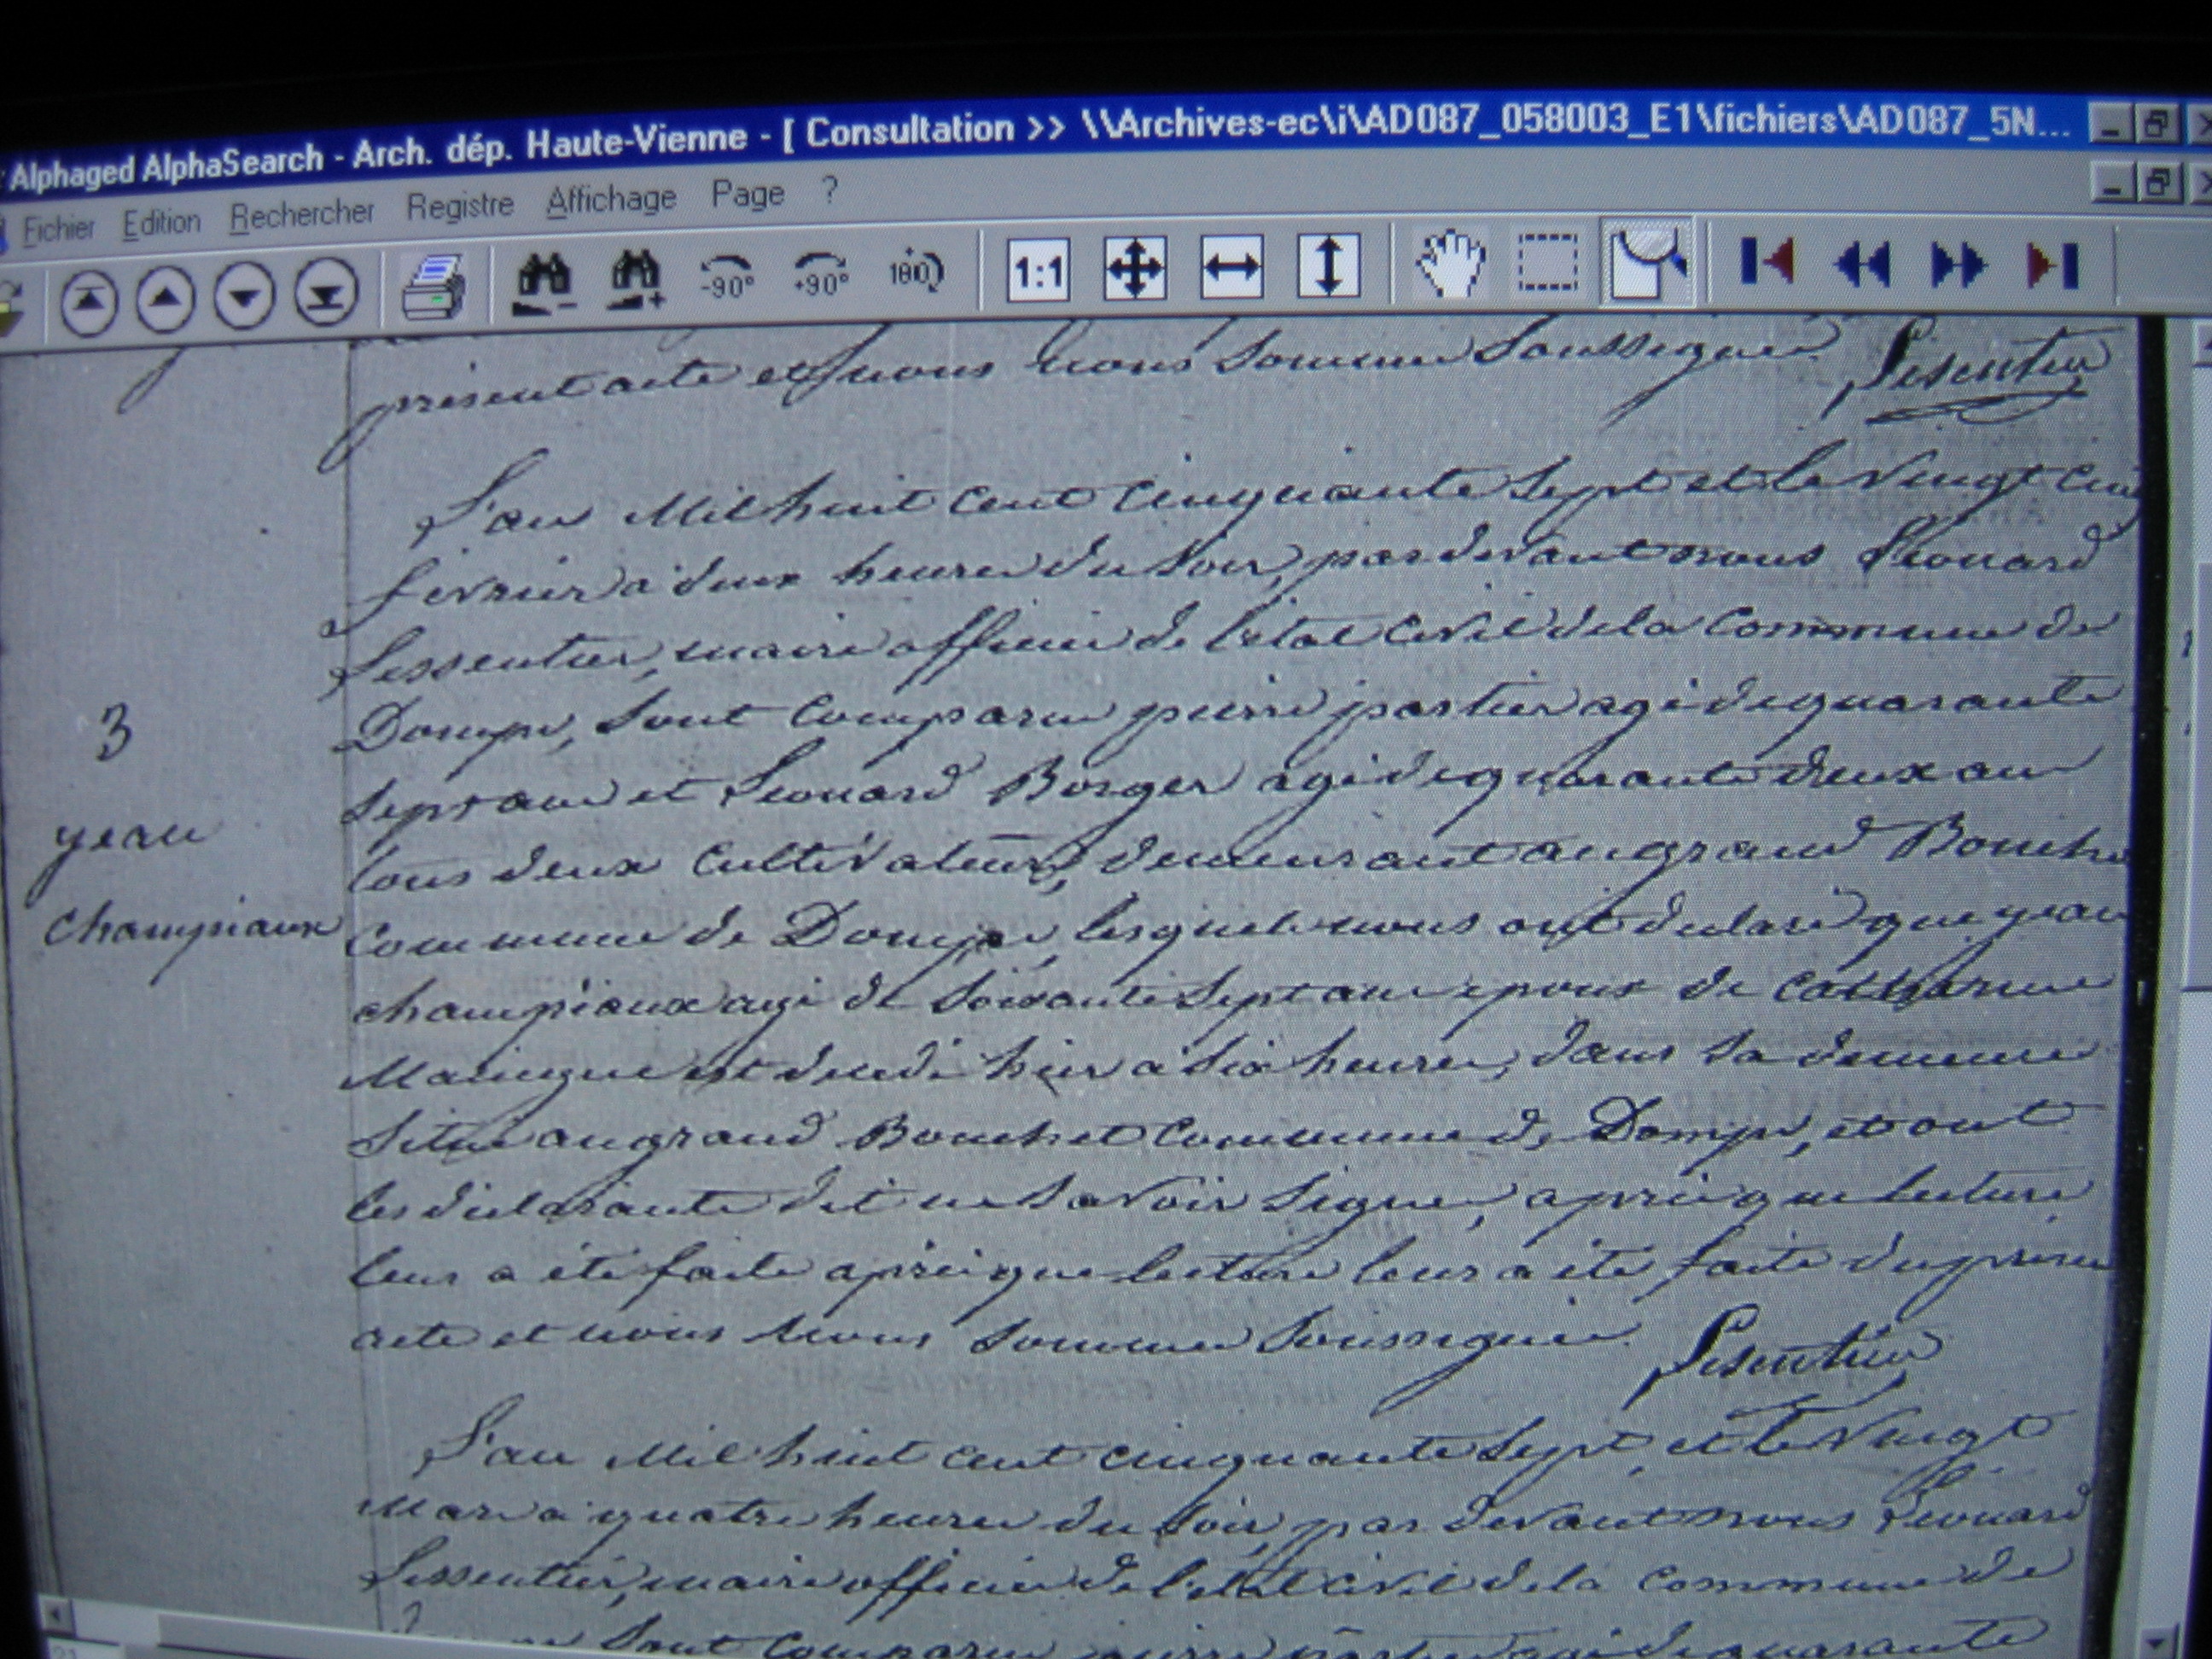 Alphaged AlphaSearch - Arch. dép. Haute-Vienne - [ Consultation >> \\Archives-ec\i\AD087_058003_E1\fichiers\AD087_5N...
Fichier Edition Rechercher Registre Affichage Page ?
-90° +90° 180 1:1
présent acte et nous nous somme soussignée Lesentier
L'an Mil huit cent cinquante sept et le vingt cinq
fevrier a deux heure du soir, par devant nous Léonard
Lessentier, maire officier de l'état civil de la commune de
Dompe, sont comparue pierre partier agé de quarante
sept ans et Léonard Borger agé de quarante deux ans
tous deux cultivateurs, demeurant au grand Bouchet
3
yeau
champiaux
commune de Dompe, lesquels nous ont déclaré que yeau
champiaux agé de soixante sept ans epoux de Catherine
est decedé hier a six heure, dans sa demeure
situé au grand Bouchet commune de Dompe, et ont
les déclarants dit ne savoir signer, après que lecture
leur a été faite après que lecture leur a été faite du présent
acte et nous nous somme soussigné. Lesentier
L'an Mil huit cent cinquante sept, et le vingt
Mars a quatre heure du soir, par devant nous Léonard
Lessentier, maire officier de l'état civil de la commune de
sont comparue pierre partier agé de quarante